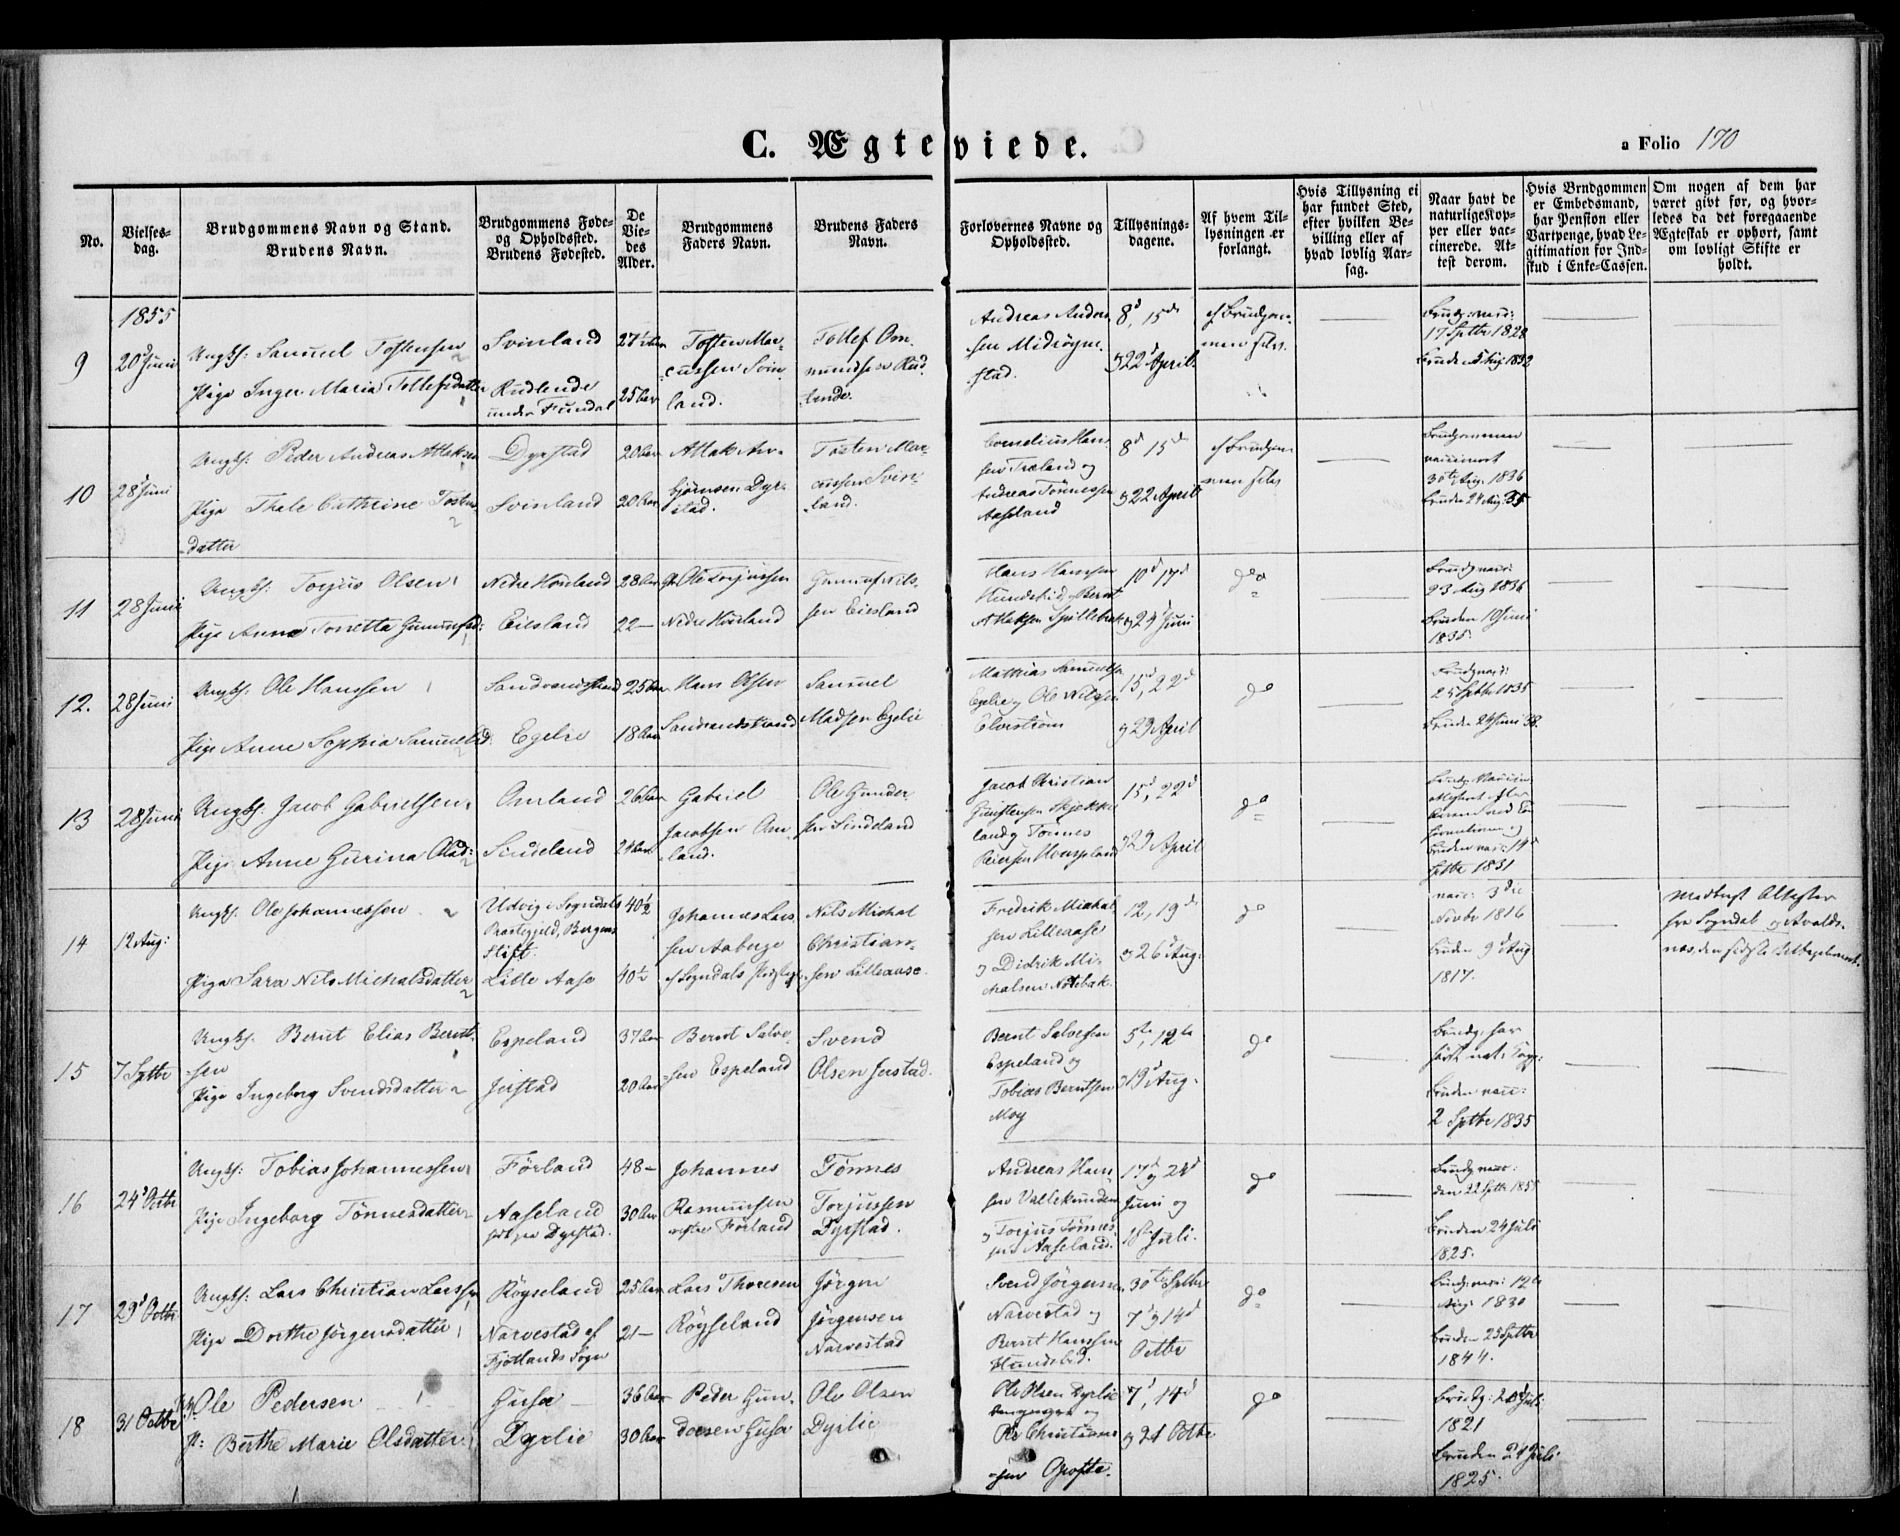 C. Ægteviede.
a Folio 170
No.
Vielses-
dag.
Brudgommens Navn og Stand.
Brudens Navn.
Brudgommens Føde-
og Opholdssted.
Brudens Fødested.
De
Vie-
des
Alder.
Brudgommens
Faders Navn.
Brudens Faders
Navn.
Forlovernes Navne og
Opholdssted.
Tillysnings-
dagene.
Af hvem Til-
lysningen er
forlangt.
Hvis Tillysning ei
har fundet Sted,
efter hvilken Be-
villing eller af
hvad lovlig Aar-
sag.
Naar havt de
naturlige Kop-
per eller vac-
cinerede. At-
test derom.
Hvis Brudgommen
er Embedsmand,
har Pension eller
Vartpenge, hvad Le-
gitimation for Ind-
skud i Enke-Cassen.
Om nogen af dem har
været givt før, og hvor-
ledes da det foregaaende
Ægteskab er ophørt, samt
om lovligt Skifte er
holdt.
1855
9
20d Juni
Ungk: Samuel Tostensen
Pige Inger Maria Tollefsdatter
Svinland
Rudlende
under Fundal
25 Aar
Tosten Mar-
cussen Svin-
land.
Tollef Om-
mundsen Rud-
lende.
Andreas Ander-
sen Midtøgne-
stad.
8d, 15de
og 22d April
af Brudgom-
men selv.
Brudg: vacc:
17 Sptbr 1828
10
28d Juni
Ungk: Peder Andreas Attaksen
Pige Thale Cathrine Tosten-
datter
Dyrstad
Svinland
20 Aar
20 Aar
Attak An-
bjørnsen Dyr-
stad.
Tosten Mar-
cussen Svin-
land.
Cornelius Han-
sen Træland og
Andreas Tønnessen
Aaseland
8d 15de
og 22 April
af Brudgom-
men selv
Brudgommen
vaccineret
30te Aug. 1836
Bruden 24 Aug: 35
11
28 Juni
Ungk: Torjus Olsen
Pige Anne Tonetta Gunnufsd:
Nedre Houland
Eiesland
28 Aar
22 —
Ole Torjussen
Nedre Houland
Gunnuf Nils-
sen Eiesland
Hans Hanssen
Hundebid, Bernt
Attaksen Spillebrok
10d 17d
og 24d Juni
do
Brudg vacc:
23 Aug 1836
Bruden 10 Juni
1835.
12.
28 Juni
Ungk: Ole Hanssen
Pige Anne Sophia Samuelsd:
Sandvandstrand
Egelie
25 Aar
18 Aar
Hans Olsen
Sandvandstrand
Samuel
Madsen Egelie
Mathias Samuelsen
Egelie og Ole Nilssen
Elvestrøm
15d, 22d
og 29 April
do
Brudg vacc:
25 Sptbr 1835
Bruden 24 Juni 38.
13
28 Juni
Ungk. Jacob Gabrielsen
Pige Anne Gurina Olsd:
Omland
Sindeland
26 Aar
24 Aar
Gabriel
Jacobsen Om-
land.
Ole Gunder-
sen Sindeland
Jacob Christian
land og Tønnes
15d, 22d
og 29 April
do
Bruden vac: 14d
Sptbr 1831
14
12 Aug:
Ungk. Ole Johannessen
Pige Sara Nils Michalsdatter
Udvig i Sogndals
Præstegjeld, Bergens
Stift.
Lille Aase
40½
40½
Johannes Lars-
sen Aaberge
af Sogndals
Nils Michal
Christian-
sen Lilleaase.
Fredrik Michal-
sen Lilleaase
og Didrik Mi-
chalsen Notebak.
12, 19de
og 26 Aug:
do
vacc: 3die
Novbr 1816
Bruden 9d Aug
1817.
Medbragt Attester
fra Sogndal og Avalds-
nes,
15
7 Sptbr
Ungk. Bernt Elias Bernt-
sen
Pige Ingeborg Svendsdatter
Espeland
Jerstad
37 Aar
20 Aar
Bernt Salve-
sen Espeland
Svend
Olsen Jerstad.
Bernt Salvesen
Espeland og
Tobias Berntsen
Moy
5te, 12te
og 19d Aug.
do
Brudg: har
havt nat: Kop:
Bruden vacc:
2 Sptbr 1835
16
24d Octbr
Ungk: Tobias Johannessen
Pige Ingeborg Tønnesdatter
Førland
Aaseland
født paa Dyrstad.
48 —
30 Aar
Johannes
Rasmussen
vestre Førland
Tønnes
Torjussen
Dyrstad.
Andreas Han-
sen Vallekunden
og Torjus Tønnes-
sen Aaseland.
17d og 24d
Juni og
1ste Juli.
do
Brudg vacc:
den 22 Sptbr 1855
Bruden 24 Juli
1825.
17
29d Octbr
Ungk: Lars Christian Larssen
Pige Dorthe Jørgensdatter
Røyseland
Narvestad af
Fjotlands Sogn
25 Aar
21 —
Lars Thoresen
Røyseland
Jørgen
Jørgensen
Narvestad
Svend Jørgensen
Narvestad og
Bernt Hanssen
Hundebid.
30te Sptbr
7d og 14d
Octbr
do
Brudg vac: 12te
Aug: 1830
Bruden 25 Sptbr
1844.
18
31 Octbr
Ole Pedersen
P: Berthe Marie Olsdatter
Gusæ
Dyrlie
36 Aar
30 Aar
Peder Gun-
dersen Gusæ
Ole Olsen
Dyrlie
Ole Olsen Dyrlie
og
Christians-
sen Opofte.
7d, 14d
og 21 Octbr
do
Brudg: 20d Juli
1821
Bruden 24 Juli
1825.